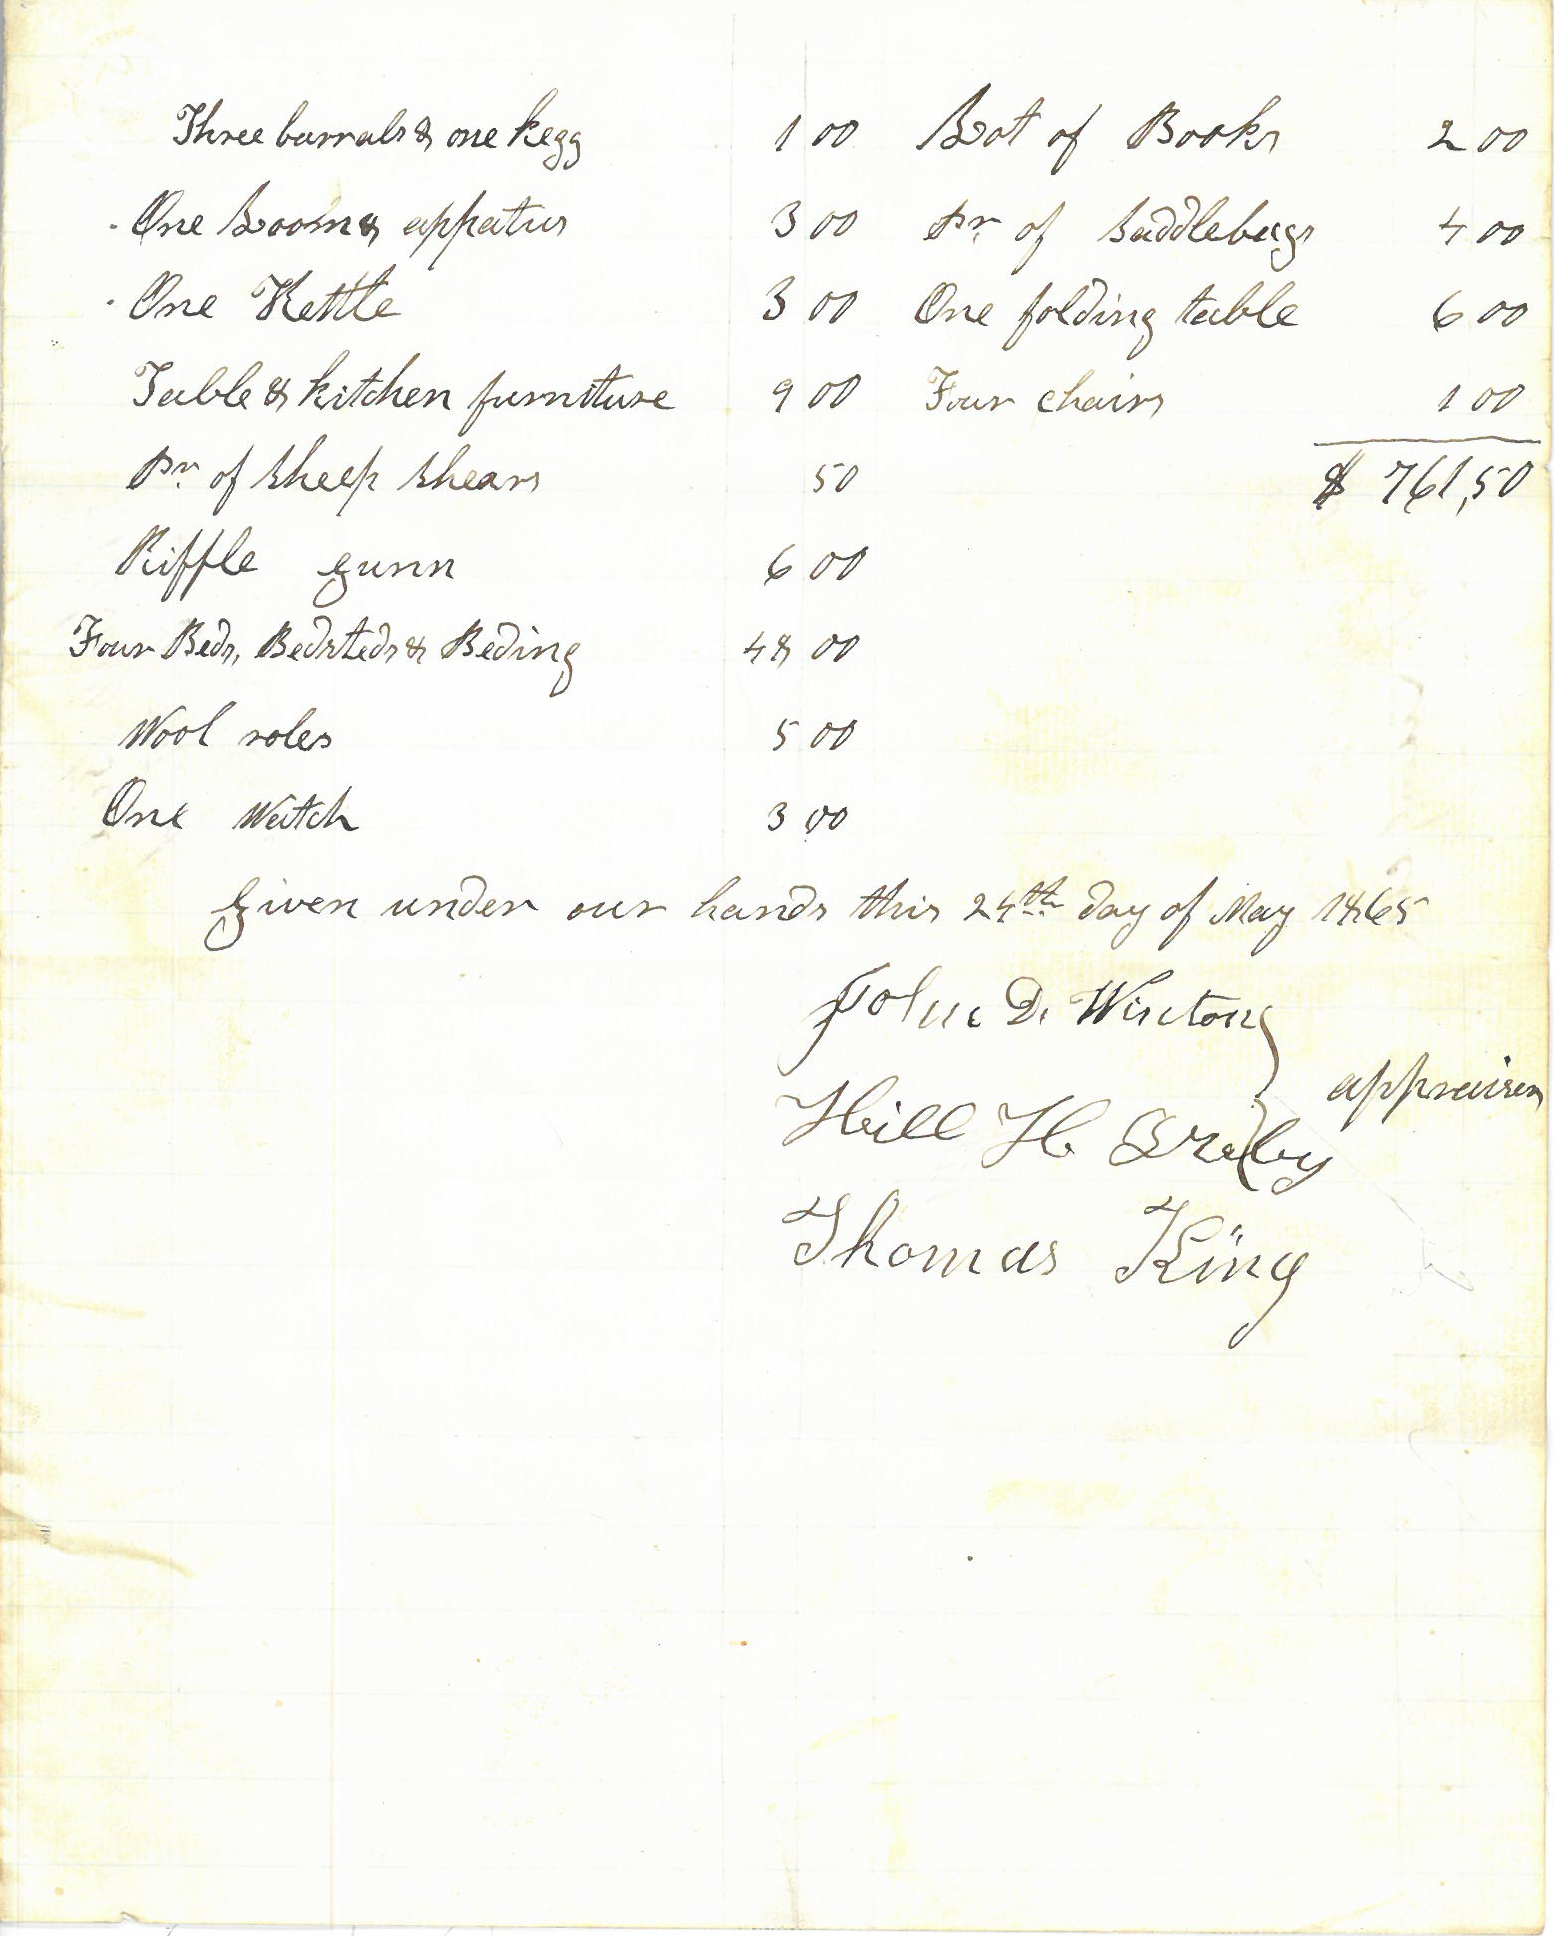 Three barrals & one kegg 1 00
One Loom & appatus 3 00
One Kettle 3 00
Table & kitchen furniture 9 00
Pr. of Sheep Shears 50
Riffle gunn 6 00
Four Beds, Bedsteds & Beding 48 00
Wool roles 5 00
One Watch 3 00
Lot of Books 2 00
Pr. of Saddlebags 4 00
One folding table 6 00
Four chairs 1 00
$ 761,50
Given under our hands this 24th day of May 1865
John D. Winton
appraisers
Hill H
Thomas King